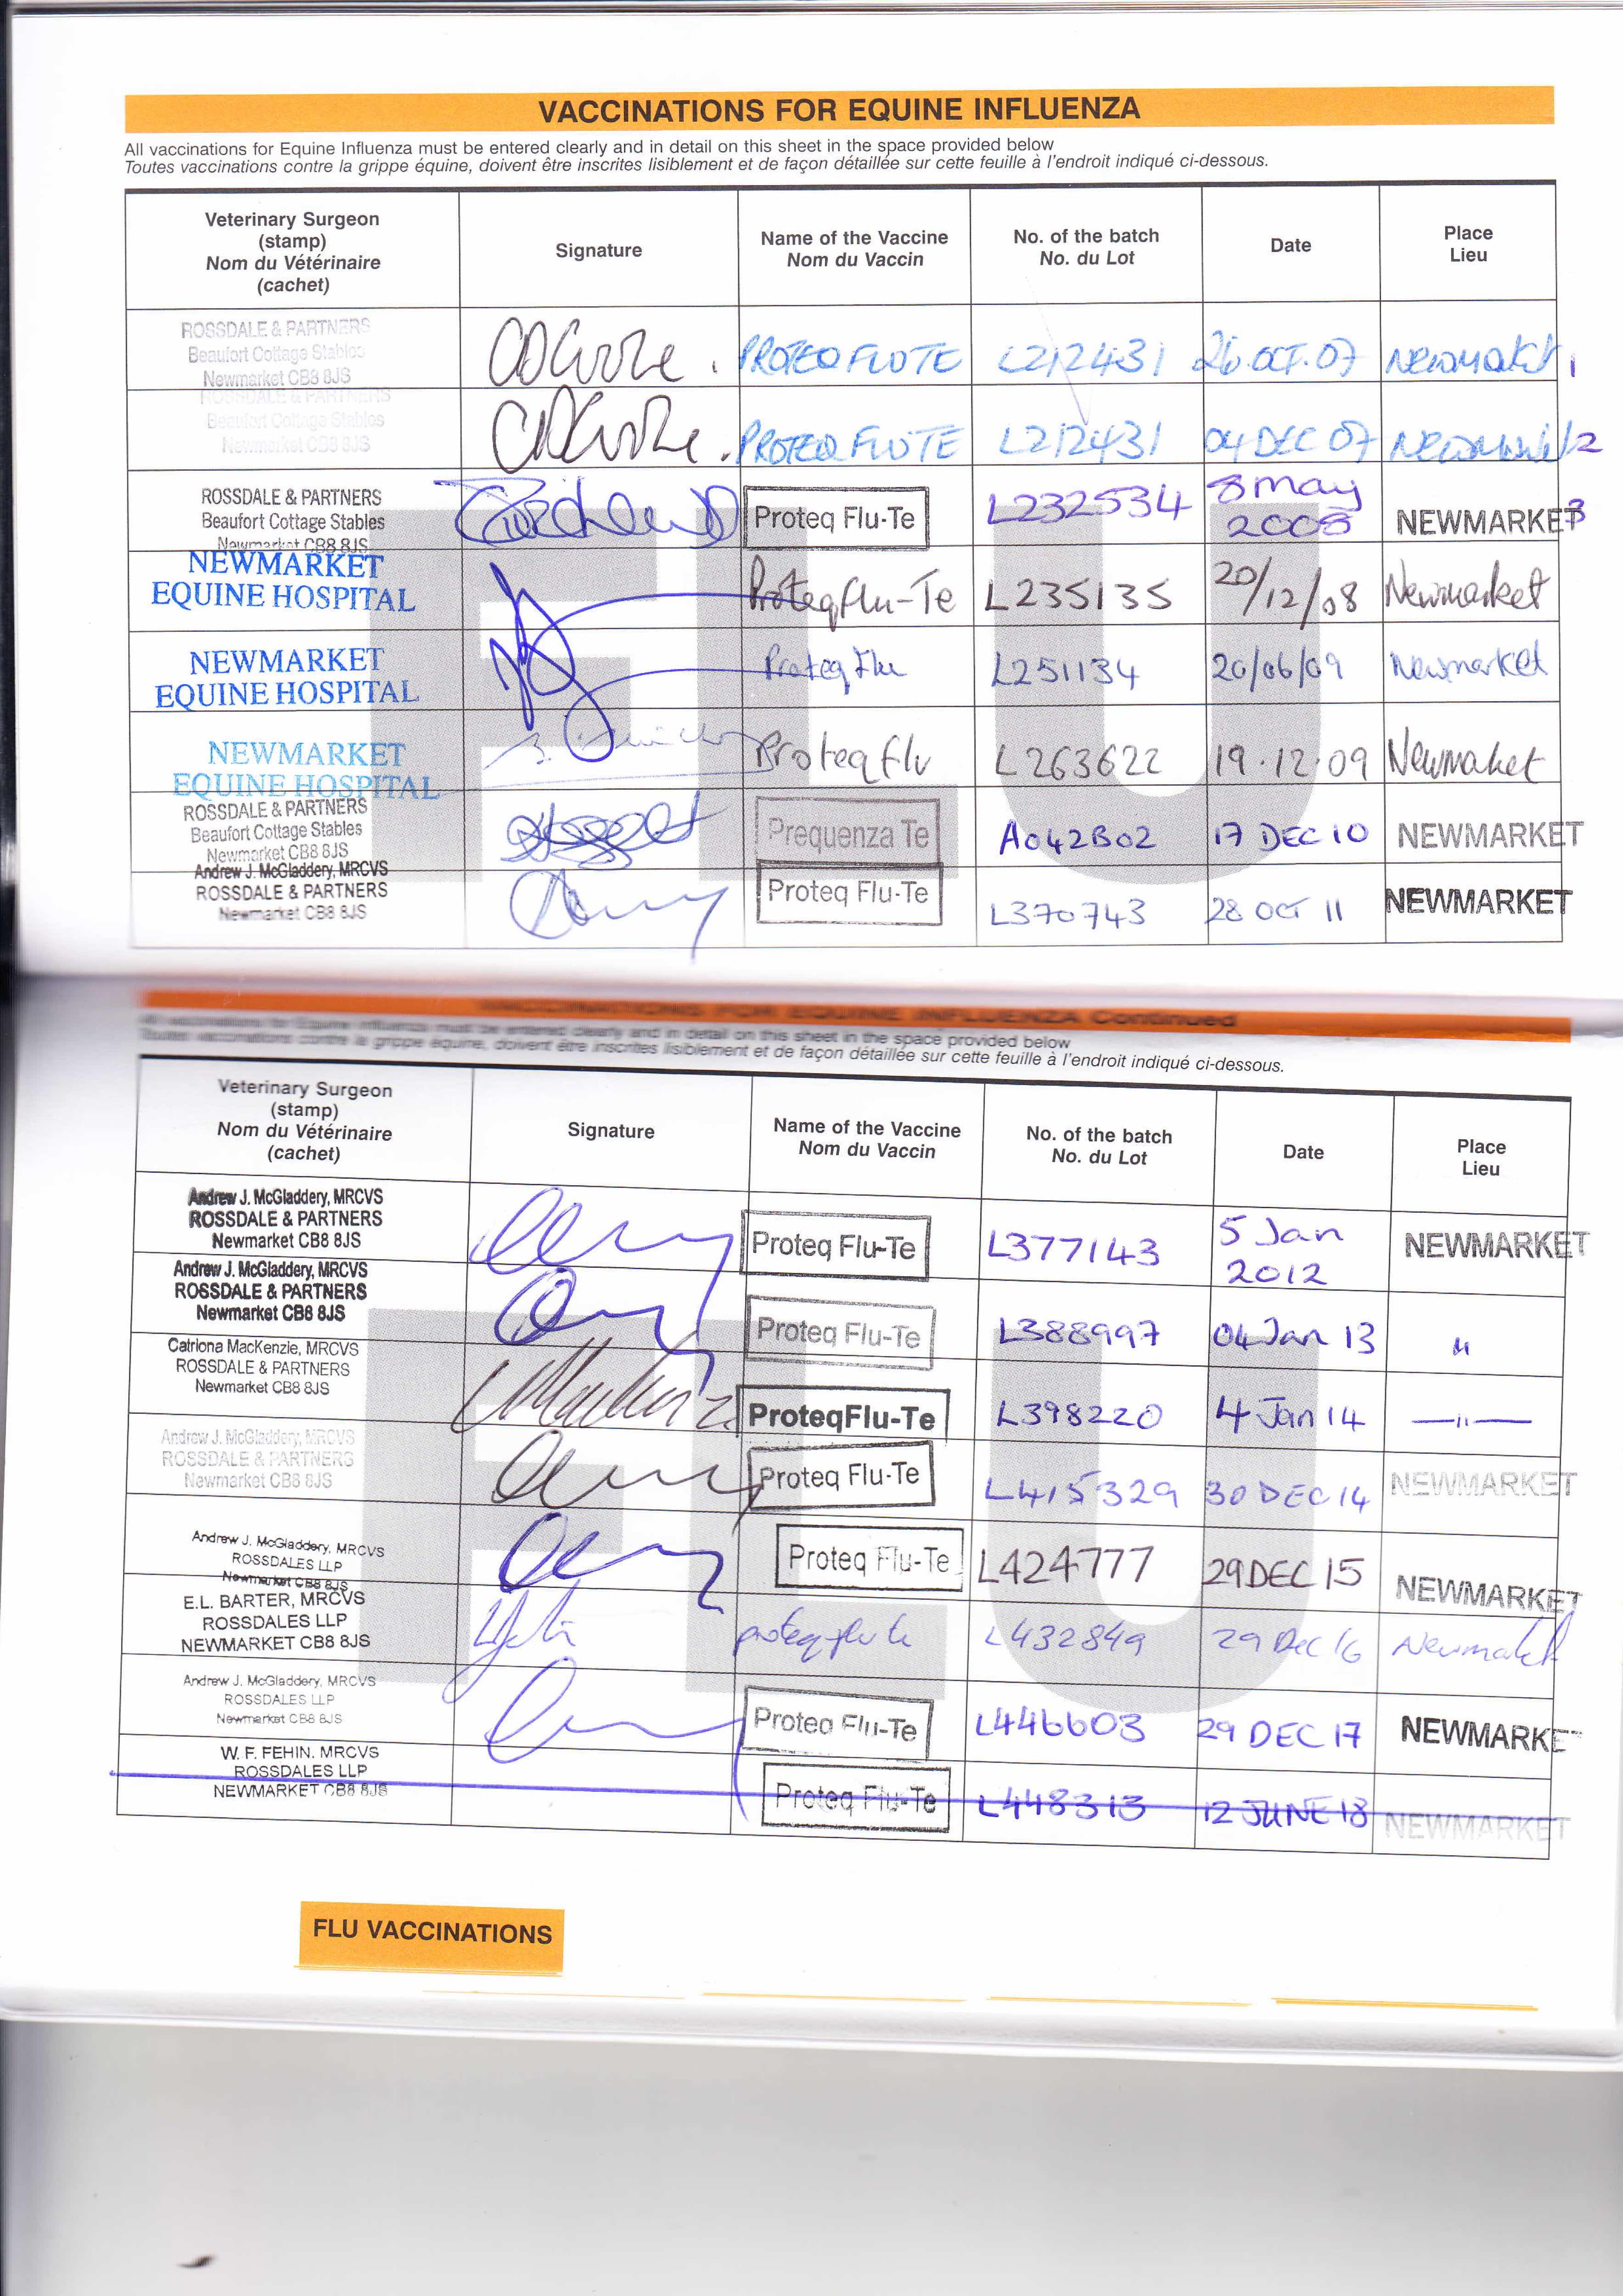 VACCINATIONS FOR EQUINE INFLUENZA
All vaccinations for Equine Influenza must be entered clearly and in detail on this sheet in the space provided below
Toutes vaccinations contre la grippe équine, doivent être inscrites lisiblement et de façon détaillée sur cette feuille à l'endroit indiqué ci-dessous.
Veterinary Surgeon
(stamp)
Nom du Vétérinaire
(cachet)
Signature
Name of the Vaccine
Nom du Vaccin
No. of the batch
No. du Lot
Date
Place
Lieu
ROSSDALE & PARTNERS
Beaufort Cottage Stables
Newmarket CB8 8JS
PROTEQ FLUTE L212431 26.OCT.07 Newmarket 1
ROSSDALE & PARTNERS
Beaufort Cottage Stables
Newmarket CB8 8JS
PROTEQ FLUTE L212431 04 DEC 07 Newmarket 2
ROSSDALE & PARTNERS
Beaufort Cottage Stables
Newmarket CB8 8JS
Proteq Flu-Te L232534 8 May 2008 NEWMARKET 3
NEWMARKET
EQUINE HOSPITAL
Proteqflu-Te L235135 20/12/08 Newmarket
NEWMARKET
EQUINE HOSPITAL
Proteq Flu L251134 20/06/09 Newmarket
NEWMARKET
EQUINE HOSPITAL
Proteq flu L263622 19.12.09 Newmarket
ROSSDALE & PARTNERS
Beaufort Cottage Stables
Newmarket CB8 8JS
Prequenza Te A042B02 17 DEC 10 NEWMARKET
Andrew J. McGladdery, MRCVS
ROSSDALE & PARTNERS
Newmarket CB8 8JS
Proteq Flu-Te L370743 28 OCT 11 NEWMARKET
FLU
VACCINATIONS FOR EQUINE INFLUENZA Continued
All vaccinations for Equine Influenza must be entered clearly and in detail on this sheet in the space provided below
Toutes vaccinations contre la grippe équine, doivent être inscrites lisiblement et de façon détaillée sur cette feuille à l'endroit indiqué ci-dessous.
Veterinary Surgeon
(stamp)
Nom du Vétérinaire
(cachet)
Signature
Name of the Vaccine
Nom du Vaccin
No. of the batch
No. du Lot
Date
Place
Lieu
Andrew J. McGladdery, MRCVS
ROSSDALE & PARTNERS
Newmarket CB8 8JS
Proteq Flu-Te L377143 5 Jan 2012 NEWMARKET
Andrew J. McGladdery, MRCVS
ROSSDALE & PARTNERS
Newmarket CB8 8JS
Proteq Flu-Te L388997 04 Jan 13 "
Catriona MacKenzie, MRCVS
ROSSDALE & PARTNERS
Newmarket CB8 8JS
ProteqFlu-Te L398220 4 Jan 14 —"—
Andrew J. McGladdery, MRCVS
ROSSDALE & PARTNERS
Newmarket CB8 8JS
Proteq Flu-Te L415329 30 DEC 14 NEWMARKET
Andrew J. McGladdery, MRCVS
ROSSDALES LLP
Newmarket CB8 8JS
Proteq Flu-Te L424777 29 DEC 15 NEWMARKET
E.L. BARTER, MRCVS
ROSSDALES LLP
NEWMARKET CB8 8JS
proteq flu te L432849 29 Dec 16 Newmarket
Andrew J. McGladdery, MRCVS
ROSSDALES LLP
Newmarket CB8 8JS
Proteq Flu-Te L446603 29 DEC 17 NEWMARKET
W. F. FEHIN. MRCVS
ROSSDALES LLP
NEWMARKET CB8 8JS
Proteq Flu-Te L448313 12 JUNE 18 NEWMARKET
FLU
FLU VACCINATIONS